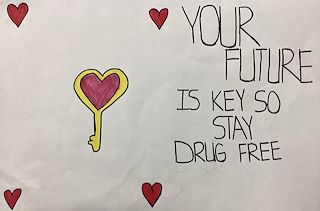 YOUR
FUTURE
IS KEY SO
STAY
DRUG FREE